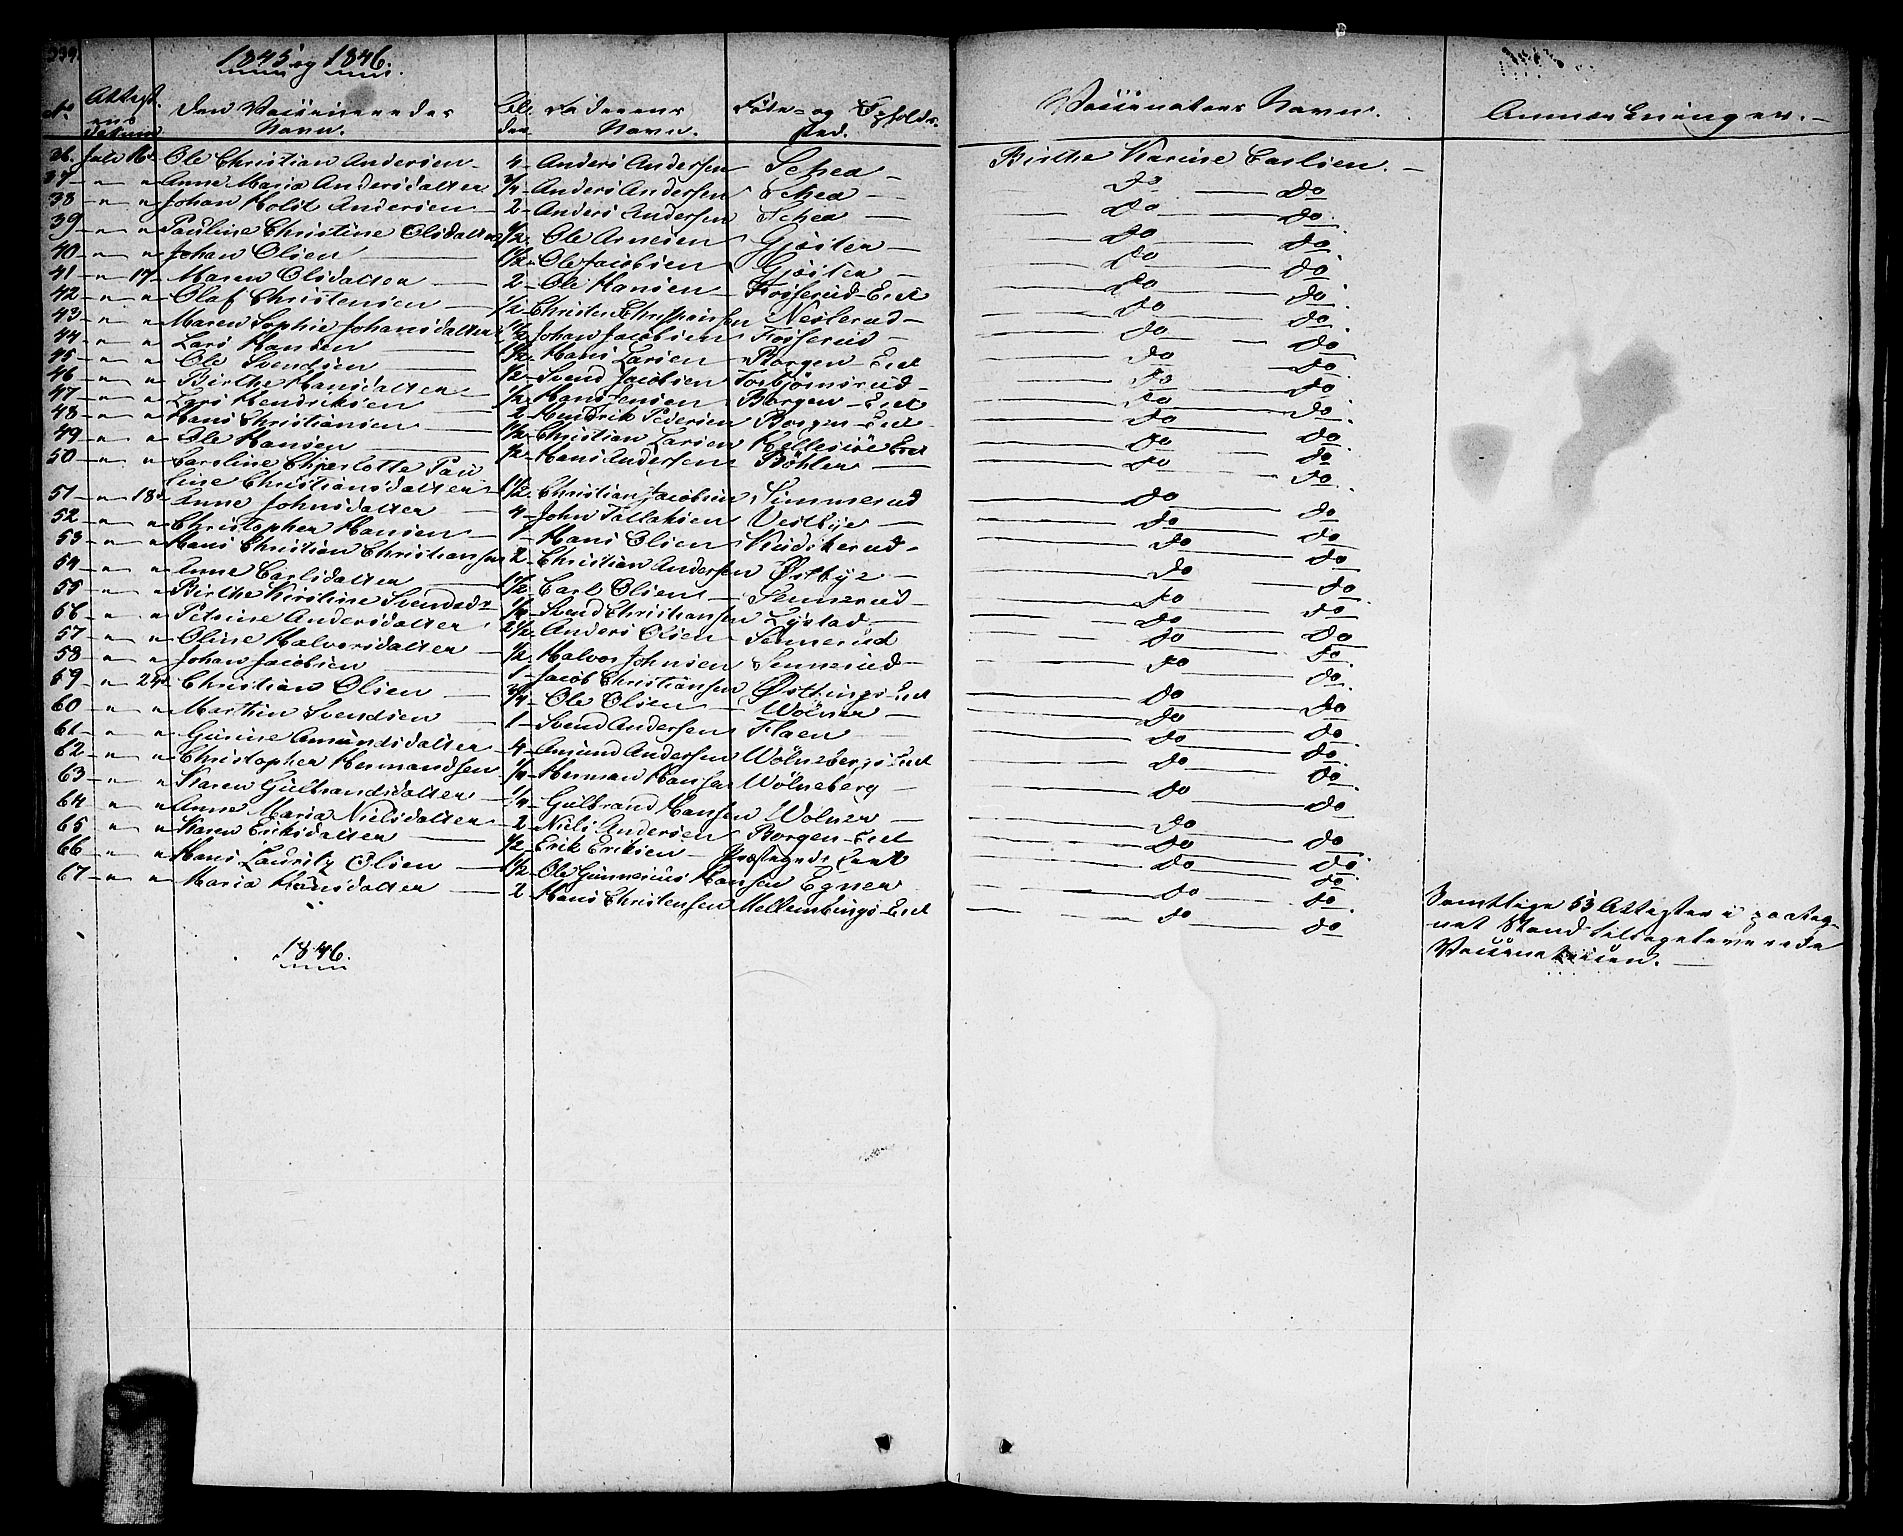 334
1845 og 1846.
No Attest. ens Datum Den Vaccineredes Navn. Al- der Faderens Navn. Føde- og Opholds- sted. Vaccinateurs Navn. Anmærkninger.
36. Juli 16 Ole Christian Andersen 4 Anders Andersen Schea Birthe Karine Carlsen.
37 " " Anne Maria Andersdatter 3/4 Anders Andersen Schea do do
38 " " Johan Holst Andersen 2 Anders Andersen Schea do do
39 " " Pauline Christine Olsdatter 1/2 Ole Arnesen Gjøsten do do
40 " " Johan Olsen 1/2 Ole Jacobsen Gjøsten do do
41 " 17 Maren Olsdatter 2 Ole Hansen Fosserud-Eiet do do
42 " " Olaf Christensen 1/2 Christen Neslerud do do
43 " " Maren Sophie Johansdatter 1 1/2 Johan Jacobsen Fosserud do do
44 " " Lars Hansen 1/2 Hans Larsen Borgen-Eiet do do
45 " " Ole Svendsen 1/2 Svend Jacobsen Torbjørnsrud do do
46 " " Birthe Hansdatter 1/2 Hans Jensen Borgen-Eiet do do
47 " " Lars Hendriksen 2 Hendrik Pedersen Borgen-Eiet do do
48 " " Hans Christiansen 1/2 Christian Larsen Eiet do do
49 " " Ole Hansen 1/2 Hans Andersen Böhler do do
50 " " Caroline Charlotte Pau
line Christiansdatter 1 1/2 Christian Jacobsen Simmerud do do
51 " 18 Anne Johnsdatter 4 John Tallaksen Vestbye do do
52 " " Christopher Hansen 1 Hans Olsen do do
53 " " Hans Christian Christiansen 2 Christian Andersen Østbye do do
54 " " Anne Carlsdatter 1 1/2 Carl Olsen Sennerud do do
55 " " Birthe Kirstine Svendsdr 1/4 Svend Christiansen Lystad do do
56 " " Petrine Andersdatter 2 1/2 Anders Olsen Sennerud do do
57 " " Oline Halvorsdatter 1/2 Halvor Johnsen Sennerud do do
58 " " Johan Jacobsen 1 Jacob Christiansen Østbyngs-Eiet do do
59 " 24 Christian Olsen 3/4 Ole Olsen Wölner do do
60 " " Martin Svendsen 1 Svend Andersen Flaen do do
61 " " Gunine Amundsdatter 4 Amund Andersen Wölnebergs Eiet do do
62 " " Christopher Hermandsen 1/4 Herman Hansen Wölneberg do do
63 " " Karen Gulbrandsdatter 1/4 Gulbrand Hansen Wölner do do
64 " " Anne Maria Nielsdatter 2 Niels Andersen Borgen-Eiet do do
65 " " Karen Eriksdatter 1/2 Erik Eriksen Præstegrds Eiet do do
66 " " Hans Lauritz Olsen 1 1/2 Ole Gunnerius Hansen Egner do do
67 " " Maria Hansdatter 2 Hans Christensen Mellembings-Eiet do do
Samtlige 53 Attester i paateg-
net Stand tilbageleverede
Vaccinatricen.
1846.